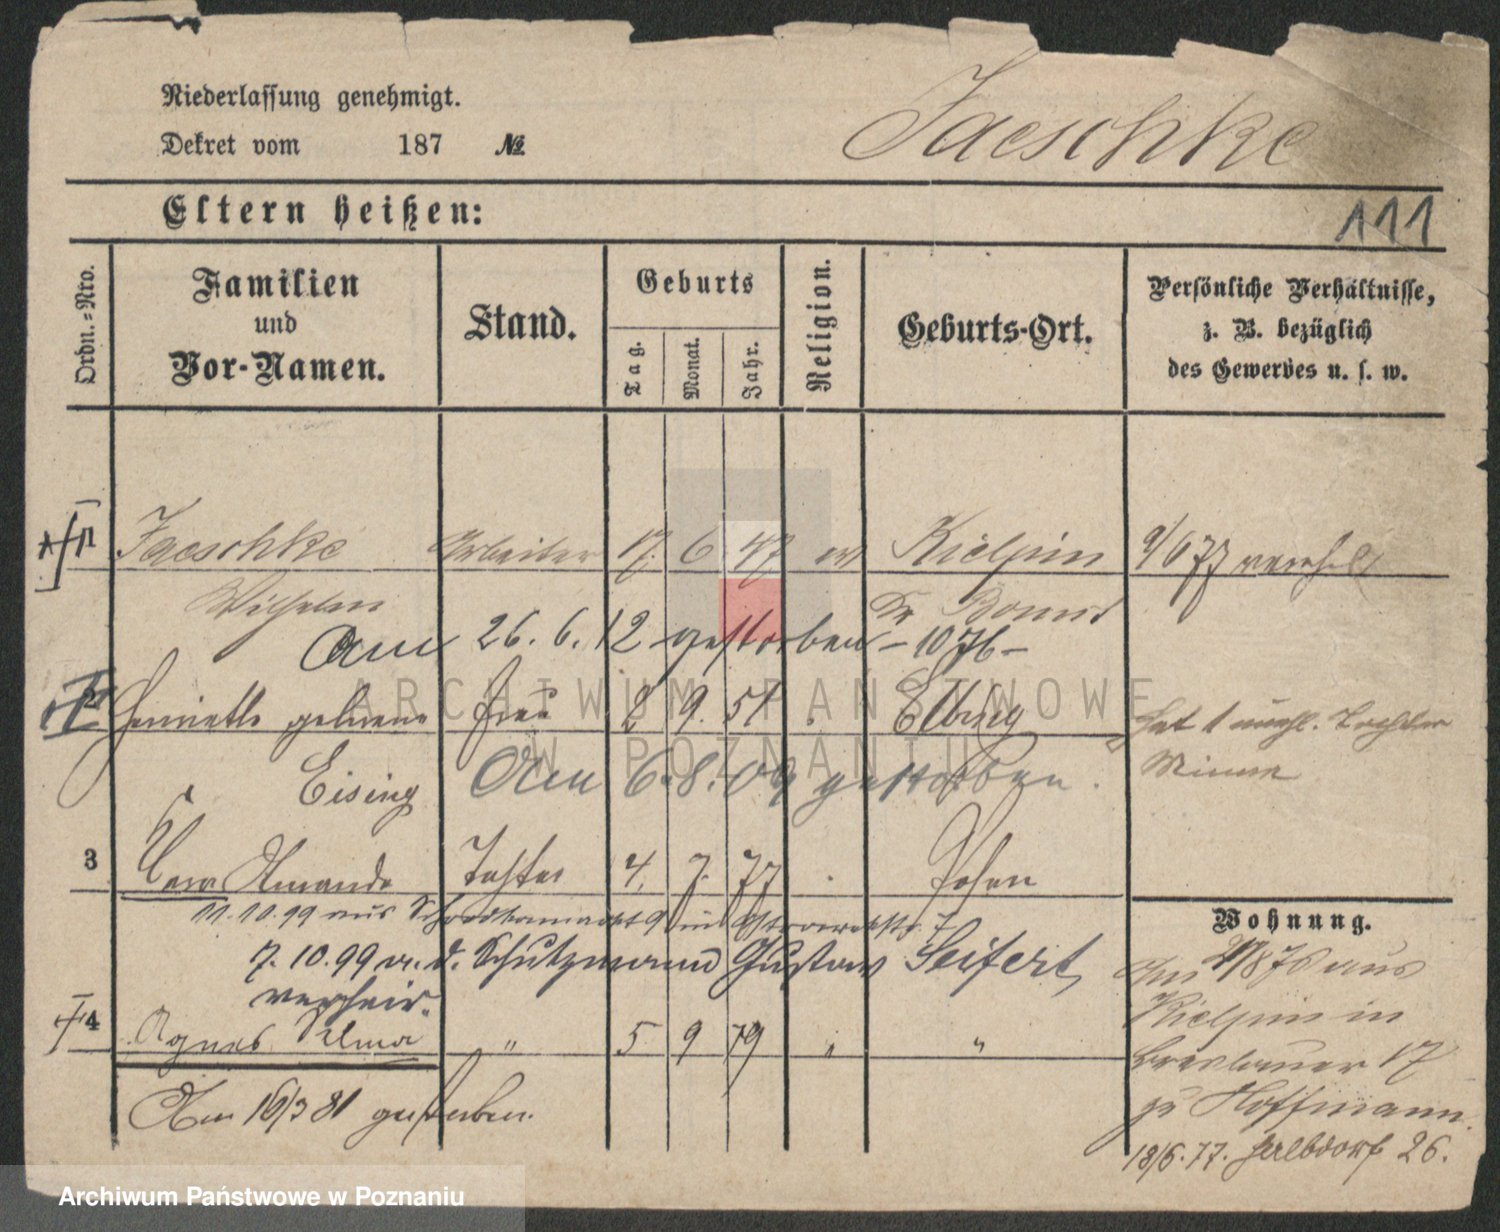 Niederlassung genehmigt.
Jaeschke
Dekret vom 187 №
Eltern heißen:
111
Ordn.=Nro.
Familien
und
Vor-Namen.
Stand.
Geburts
Tag.
Monat.
Jahr.
Religion.
Geburts-Ort.
Persönliche Verhältnisse,
z. B. bezüglich
des Gewerbes u. s. w.
1 Jaeschke Arbeiter 17. 6 47. ev Kielpin 9/6 77 verehel
Wilhelm Kr Bomst
Am 26. 6. 12 gestorben - 1076 -
2 Henriette geborene Frau 2 9. 51 Elbing hat 1 unehl. Tochter
Eising Minna
Am 6. 8. 09 gestorben.
3 Clara Amanda Tochter 4. 7. 77 Posen
11.10.99 aus
7. 10. 99 m. d. Schutzmann Gustav Seifert
verheir.
4 Agnes Selma " 5 9 79 " "
Am 16/3 81 gestorben.
Wohnung.
8 76 aus
Kielpin in
Breslauer 17
zu Hoffmann.
18/6. 77. Halbdorf 26.
ARCHIWUM PAŃSTWOWE
W POZNANIU
Archiwum Państwowe w Poznaniu